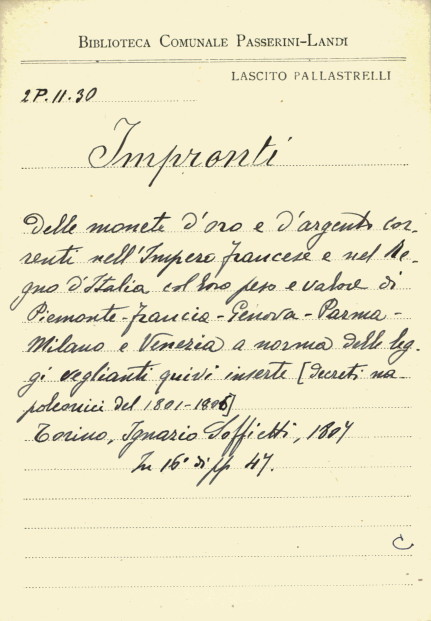 BIBLIOTECA COMUNALE PASSERINI-LANDI
LASCITO PALLASTRELLI
2P.11.30
Impronti
delle monete d'oro e d'argento cor-
renti nell'Impero francese e nel Re-
gno d'Italia col loro peso e valore di
Piemonte-Francia-Genova-Parma-
Milano e Venezia a norma delle leg-
gi veglianti quivi inserte [decreti na-
poleonici del 1801-1806]
Torino, Ignazio Soffietti, 1807
In 16° di pp 47.
C